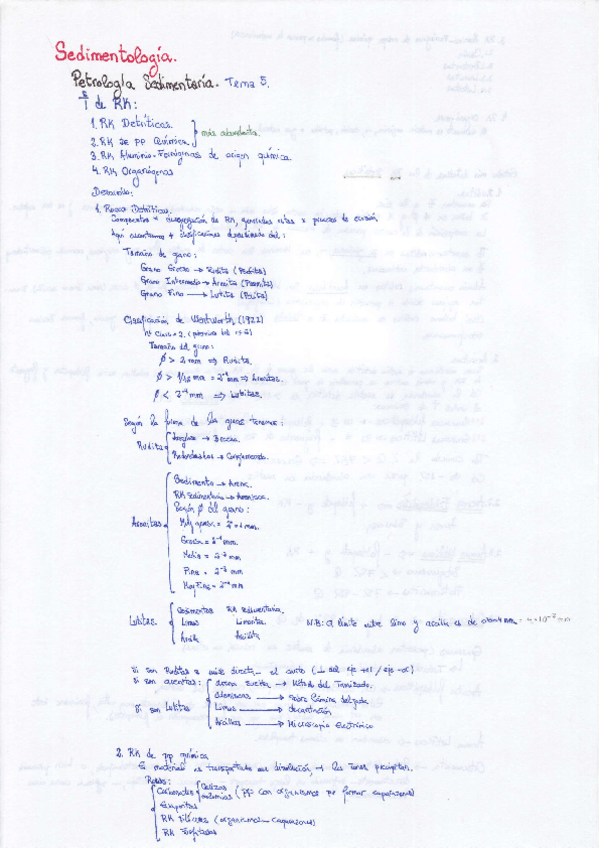 Sedimentología.
Petrología Sedimentaria. Tema 5.
de RK:
1. RK Detríticas.
2. RK de pp Química.
más abundante.
3. RK Aluminio-Ferríginas de origen química
4. RK Organógenas
Desarrollo:
1. Rocas Detríticas.
Compuestas x disgregación de RK, generadas estas x procesos de erosión
Aquí encontramos + clasificaciones dependiendo del:
Tamaño de grano:
Grano Grueso → Rudita (Psefita)
Grano Intermedio → Arenita (Psamita)
Grano Fino → Lutita (Pelita)
Clasificación de Wentworth (1922)
Tamaño del grano:
Ø > 2 mm ⇒ Rudita.
Ø > 1/16 mm = 2⁻⁴ mm ⇒
Ø < 2⁻⁴ mm ⇒ Lutitas.
Según la forma de los granos tenemos:
Ruditas
Angulosos → Brecha.
Redondeados → Conglomerado.
Arenitas
Sedimento → Arena.
RK sedimentaria → Arenisca.
Según Ø del grano:
Muy gruesa =
Gruesa = mm.
Media = mm
Fina = mm
Muy Fina = mm
Lutitas.
Sedimentos RK Sedimentaria.
Limos Limolita.
Arcilla Arcillita
N.B: El límite entre limo y arcilla es de
Si son Ruditas → directa el
Si son arenitas:
Arena Suelta → Método del Tamizado.
Areniscas → Sobre lámina delgada
Si son Lutitas
Limos → decantación
Arcillas → Microscopio Electrónico
2. RK de pp química
El material es transportado en disolución, → las precipitan.
Rocas:
Carbonatos
Calizas
Dolomías
(pp con organismos que forman caparazones)
Evaporitas
RK Silíceas (organismos caparazones)
RK Fosfatadas